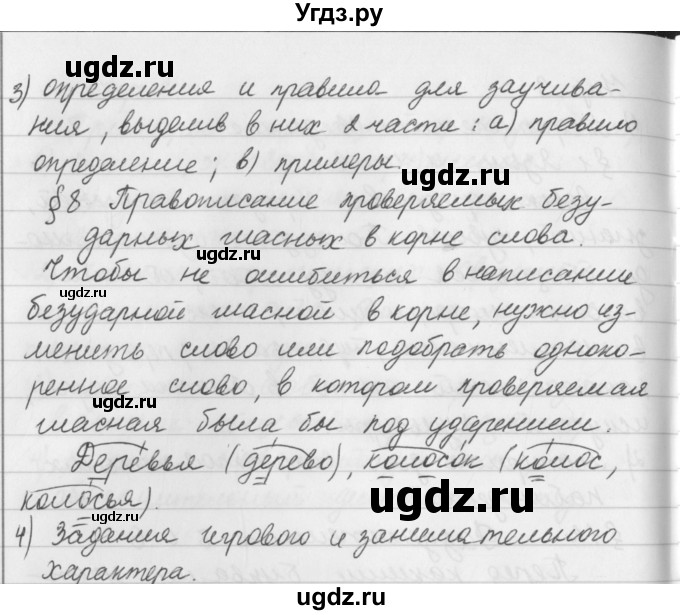 Угдз.ру
ugdz.ru
3) определения и правила для заучива-
ния, выделив в них 2 части: а) правило
определение; в) примеры
ugdz.ru
§8 Правописание проверяемых безу-
дарных гласных в корне слова.
Чтобы не ошибиться в написании
ugdz.ru
безударной гласной в корне, нужно из-
менить слово или подобрать одноко-
ренное слово, в котором проверяемая
ugdz.ru
гласная была бы под ударением.
Деревья (дерево), колосок (колос,
ugdz.ru
колосья).
ugdz.ru
4) Задания игрового и занимательного
характера.
ugdz.ru